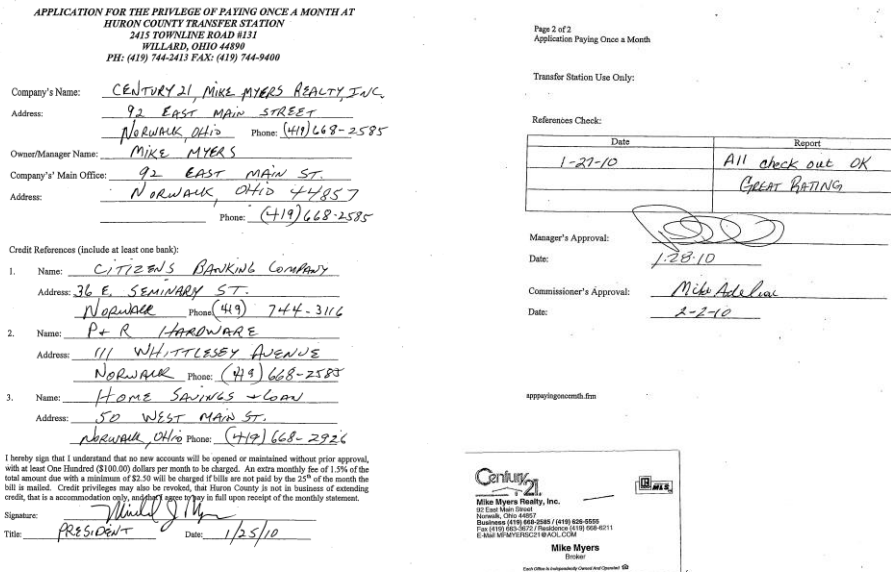 APPLICATION FOR THE PRIVLEGE OF PAYING ONCE A MONTH AT
HURON COUNTY TRANSFER STATION
2415 TOWNLINE ROAD #131
WILLARD, OHIO 44890
PH: (419) 744-2413 FAX: (419) 744-9400
Company's Name: CENTURY 21, MIKE MYERS REALTY, INC.
Address: 92 EAST MAIN STREET
NORWALK, OHIO Phone: (419) 668-2585
Owner/Manager Name: MIKE MYERS
Company's' Main Office: 92 EAST MAIN ST.
Address: NORWALK, OHIO 44857
Phone: (419) 668-2585
Credit References (include at least one bank):
1. Name: CITIZENS BANKING COMPANY
Address: 36 E. SEMINARY ST.
NORWALK Phone: (419) 744-3116
2. Name: P+R HARDWARE
Address: 111 WHITTLESEY AVENUE
NORWALK Phone: (419) 668-2585
3. Name: HOME SAVINGS + LOAN
Address: 50 WEST MAIN ST.
NORWALK, OHIO Phone: (419) 668-2926
I hereby sign that I understand that no new accounts will be opened or maintained without prior approval,
with at least One Hundred ($100.00) dollars per month to be charged. An extra monthly fee of 1.5% of the
total amount due with a minimum of $2.50 will be charged if bills are not paid by the 25th of the month the
bill is mailed. Credit privileges may also be revoked, that Huron County is not in business of extending
credit, that is a accommodation only, and that I agree to pay in full upon receipt of the monthly statement.
Signature: Michael J Myers
Title: PRESIDENT Date: 1/25/10
Page 2 of 2
Application Paying Once a Month
Transfer Station Use Only:
References Check:
Date Report
1-27-10 All check out OK
GREAT RATING
Manager's Approval:
Date: 1-28-10
Commissioner's Approval: Mike Adelman
Date: 2-2-10
apppayingoncemth.frm
Century 21
MLS
Mike Myers Realty, Inc.
92 East Main Street
Norwalk, Ohio 44857
Business (419) 668-2585 / (419) 626-5555
Fax (419) 663-3672 / Residence (419) 668-6211
E-Mail MFMYERSC21@AOL.COM
Mike Myers
Broker
Each Office Is Independently Owned And Operated